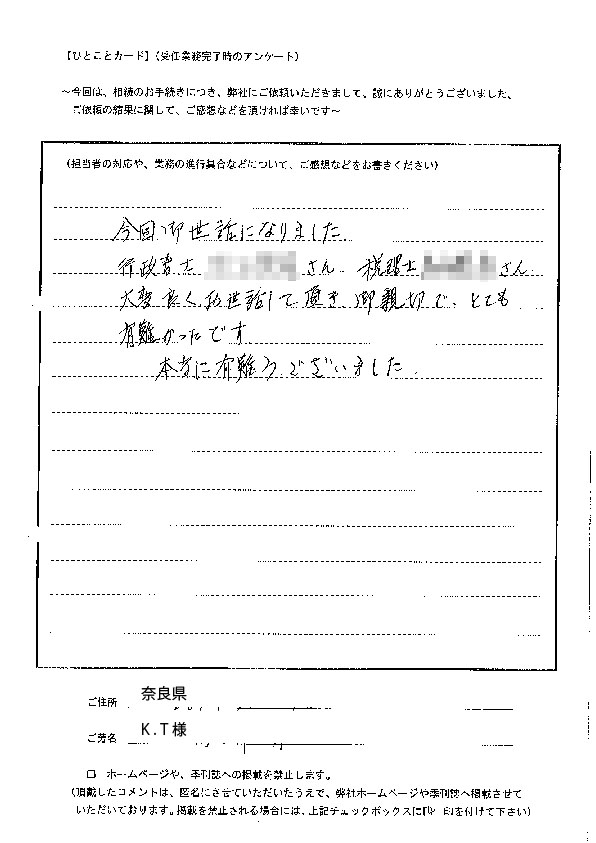 【ひとことカード】（受任業務完了時のアンケート）
～今回は、相続のお手続きにつき、弊社にご依頼いただきまして、誠にありがとうございました、
ご依頼の結果に関して、ご感想などを頂ければ幸いです～
（担当者の対応や、業務の進行具合などについて、ご感想などをお書きください）
今回御世話になりました
行政書士 さん、税理士 さん
大変良くお世話して頂き御親切で、とても
有難かったです
本当に有難うございました.
ご住所 奈良県
ご芳名 K.T様
□ ホームページや、季刊誌への掲載を禁止します。
（頂戴したコメントは、匿名にさせていただいたうえで、弊社ホームページや季刊誌へ掲載させて
いただいております。掲載を禁止される場合には、上記チェックボックスに 印を付けて下さい）